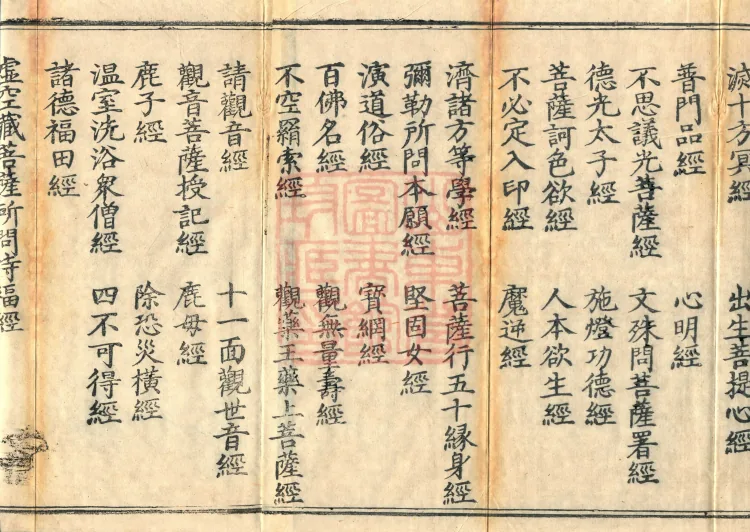 滅十方冥經 出生菩提心經
普門品經 心明經
不思議光菩薩經 文殊問菩薩署經
德光太子經 施燈功德經
菩薩訶色欲經 人本欲生經
不必定入印經 魔逆經
濟諸方等學經 菩薩行五十緣身經
彌勒所問本願經 堅固女經
演道俗經 寶網經
百佛名經 觀無量壽經
不空羅索經 觀藥王藥上菩薩經
請觀音經 十一面觀世音經
觀音菩薩授記經 鹿母經
鹿子經 除恐災橫經
温室洗浴衆僧經 四不可得經
諸德福田經
虛空藏菩薩所問寺福經